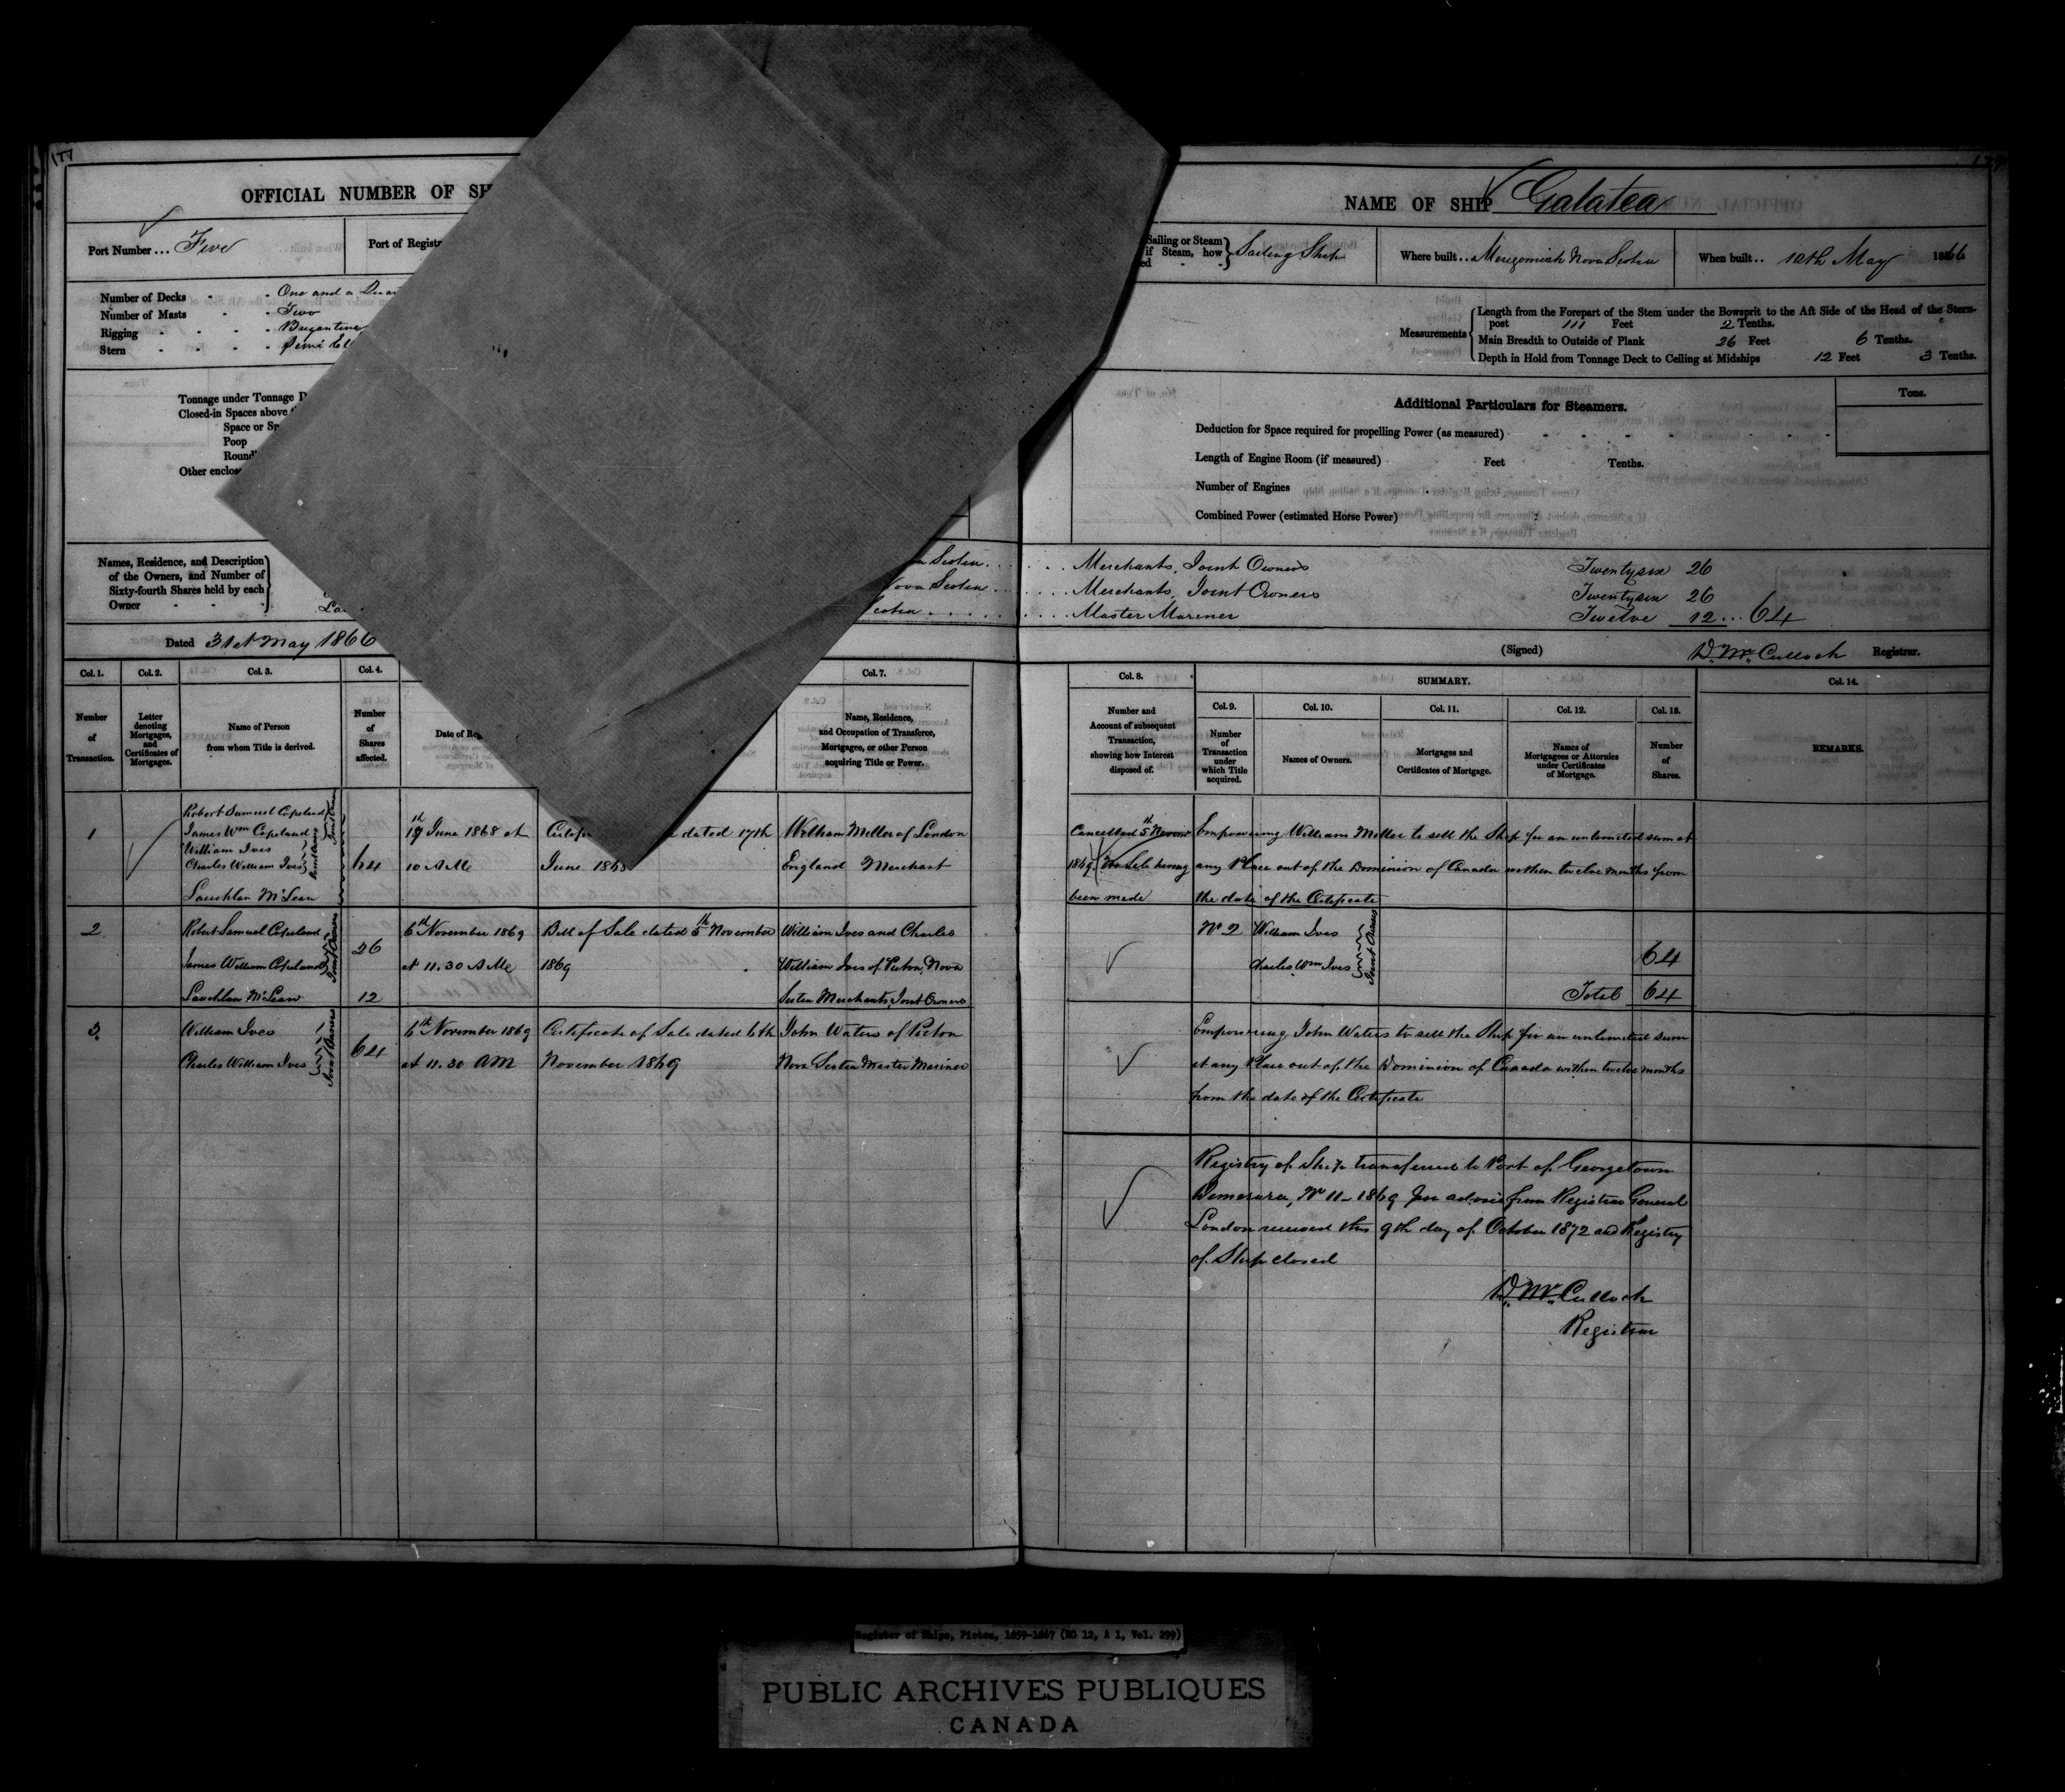 177
OFFICIAL NUMBER OF SH
NAME OF SHIP Galatea
Port Number... Five
Port of Registr
Sailing or Steam
if Steam, how
ed - -
Sailing Ship
Where built.. Merigomish Nova Scotia
When built.. 12th May 1866
Number of Decks - - One and a
Number of Masts - - Two
Rigging - - - - Brigantine
Stern - - - - Semi
Measurements
Length from the Forepart of the Stem under the Bowsprit to the Aft Side of the Head of the Stern-
post 111 Feet 2 Tenths.
Main Breadth to Outside of Plank 26 Feet 6 Tenths.
Depth in Hold from Tonnage Deck to Ceiling at Midships 12 Feet 3 Tenths.
Tonnage under Tonnage D
Closed-in Spaces above
Space or Sp
Poop
Round
Other enclos
Additional Particulars for Steamers.
Tons.
Deduction for Space required for propelling Power (as measured)
Length of Engine Room (if measured) Feet Tenths.
Number of Engines
Combined Power (estimated Horse Power)
Names, Residence, and Description
of the Owners, and Number of
Sixty-fourth Shares held by each
Owner - - -
Scotia...... Merchants, Joint Owners Twentysix 26
Nova Scotia...... Merchants, Joint Owners Twentysix 26
Scotia...... Master Mariner Twelve 12... 64
Dated 31st May 1866
(Signed) D. McCulloch Registrar.
Col. 1.
Number
of
Transaction.
Col. 2.
Letter
denoting
Mortgages,
and
Certificates of
Mortgages.
Col. 3.
Name of Person
from whom Title is derived.
Col. 4.
Number
of
Shares
affected.
Date of Reg
Col. 7.
Name, Residence,
and Occupation of Transferee,
Mortgagee, or other Person
acquiring Title or Power.
Col. 8.
Number and
Account of subsequent
Transaction,
showing how Interest
disposed of.
SUMMARY.
Col. 9.
Number
of
Transaction
under
which Title
acquired.
Col. 10.
Names of Owners.
Col. 11.
Mortgages and
Certificates of Mortgage.
Col. 12.
Names of
Mortgagees or Attornies
under Certificates
of Mortgage.
Col. 13.
Number
of
Shares.
Col. 14.
REMARKS.
1
Robert Samuel Copeland
James Wm Copeland
Joint Owners
William Ives
Charles William Ives
Joint Owners
Lauchlan McLean
64
17th June 1868 at
10 AM
Certif e dated 17th
June 1868
William Miller of London
England Merchant
Cancelled 5th Novemr
1869, No Sale having
been made
Empowering William Miller to sell the Ship for an unlimited sum at
any Place out of the Dominion of Canada within twelve months from
the date of the Certificate
2
Robert Samuel Copeland
James William Copeland
Joint Owners
26
Lauchlan McLean
12
6th November 1869
at 11.30 AM
Bill of Sale dated 5th November
1869
William Ives and Charles
William Ives of Pictou, Nova
Scotia Merchants, Joint Owners
No 2 William Ives
Charles Wm Ives
Joint Owners
64
Total 64
3
William Ives
Charles William Ives
Joint Owners
64
6th November 1869
at 11.30 AM
Certificate of Sale dated 6th
November 1869
John Waters of Pictou
Nova Scotia Master Mariner
Empowering John Waters to sell the Ship for an unlimited sum
at any Place out of the Dominion of Canada within twelve months
from the date of the Certificate
Registry of Ship transferred to Port of Georgetown
Demerara, No 11-1869 Per advice from Registrar General
London received this 9th day of October 1872 and Registry
of Ship closed
D. McCulloch
Registrar
Register of Ships, Pictou, 1859-1867 (RG 12, A 1, Vol. 299)
PUBLIC ARCHIVES PUBLIQUES
CANADA